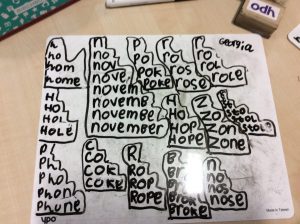 h
ho
hom
home
n
no
nov
nove
novem
novemb
novembe
november
p
po
pok
poke
r
ro
ros
rose
r
ro
rol
role
Georgia
H
Ho
Hol
HOLE
H
HO
HOP
HOPE
Z
ZO
ZON
ZONE
P
Ph
Pho
Phon
Phone
C
CO
COK
COKE
R
RO
ROP
ROPE
B
Br
Bro
Brok
Broke
n
no
nos
nose
Made in Taiwan